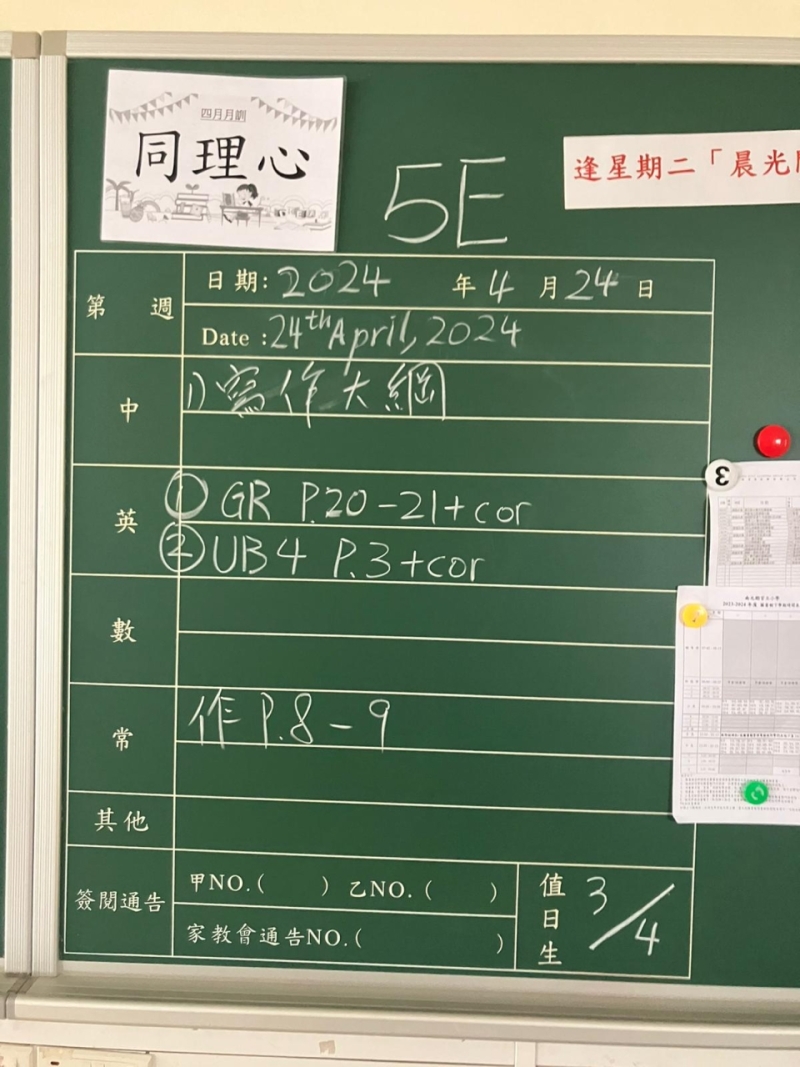 四月月訓
同理心
5E
逢星期二「晨光
第 週
日期: 2024 年 4 月 24 日
Date : 24th April, 2024
中
1) 寫作大網
英
① GR P.20-21+cor
② UB4 P.3+cor
數
常
作 P.8-9
其他
簽閱通告
甲NO.( ) 乙NO.( )
家教會通告NO.( )
值日生
3/4
3